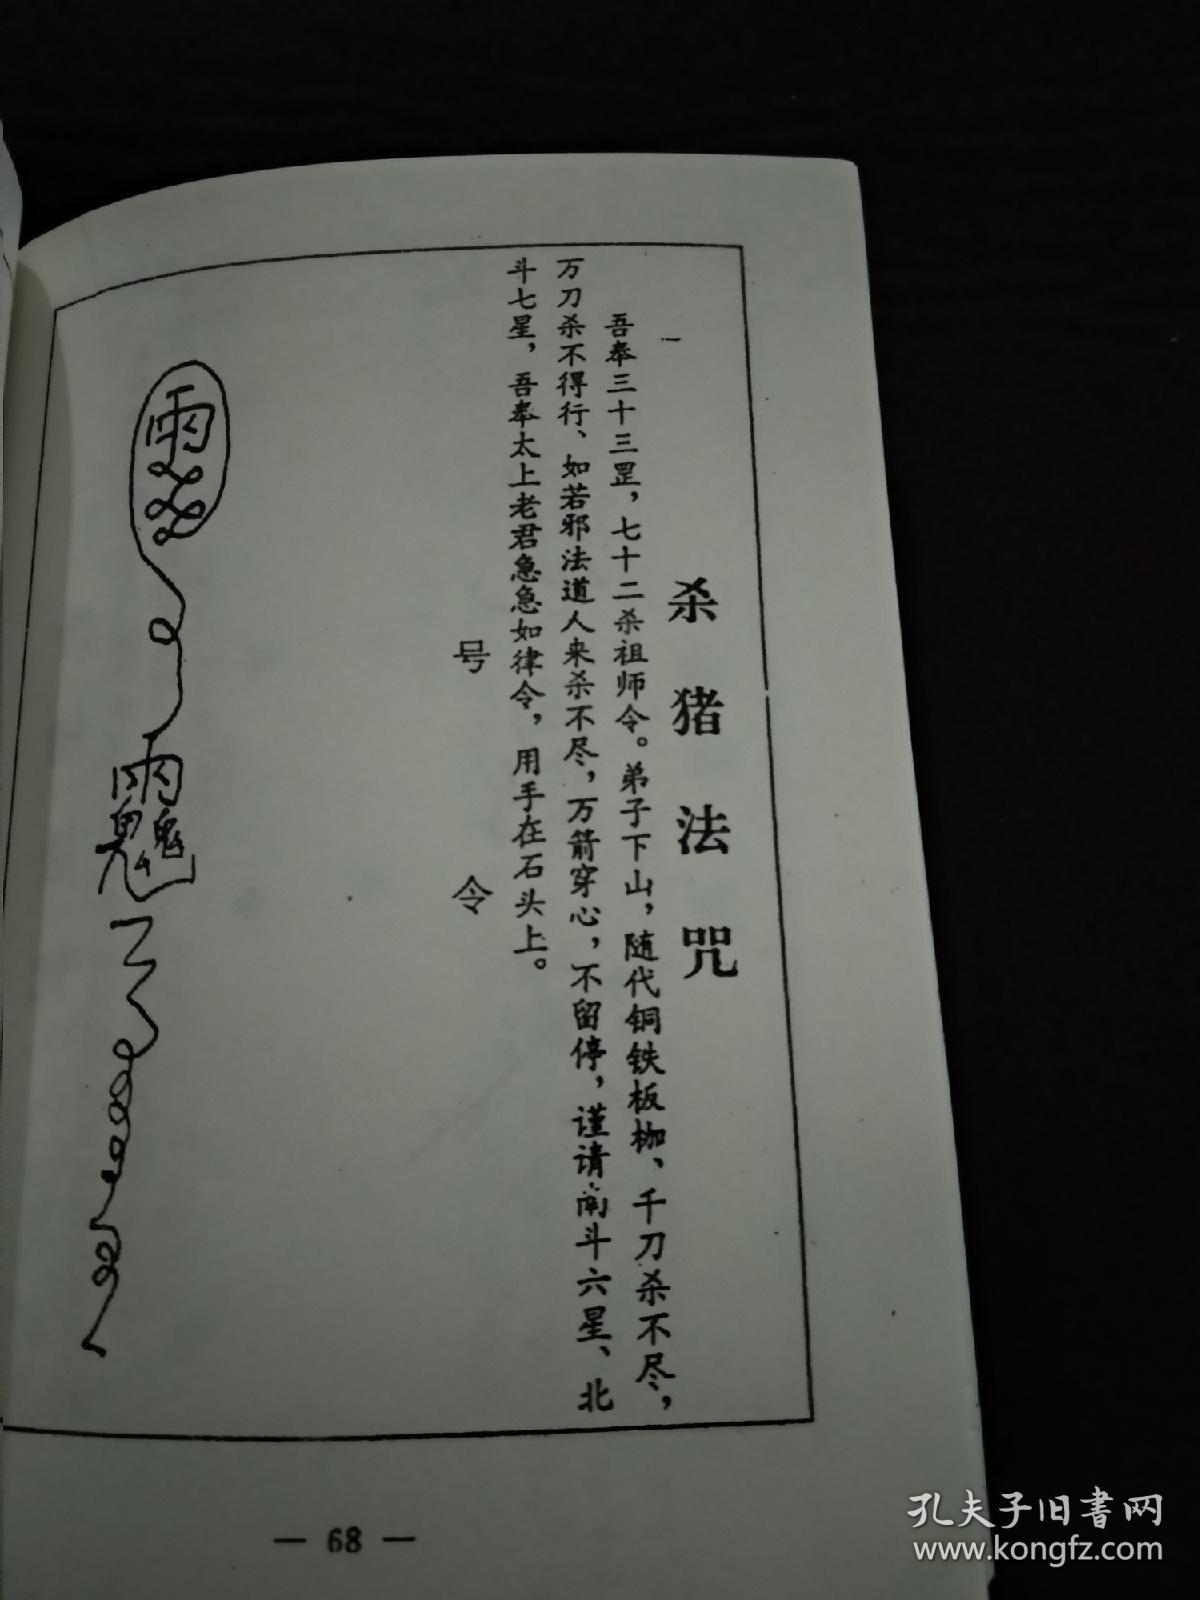 杀猪法咒
吾奉三十三罡，七十二杀祖师令。弟子下山，随代铜铁板枷、千刀杀不尽，
万刀杀不得行、如若邪法道人来杀不尽，万箭穿心，不留停，谨请南斗六星、北
斗七星，吾奉太上老君急急如律令，用手在石头上。
号令
— 68 —
孔夫子旧书网
www.kongfz.com